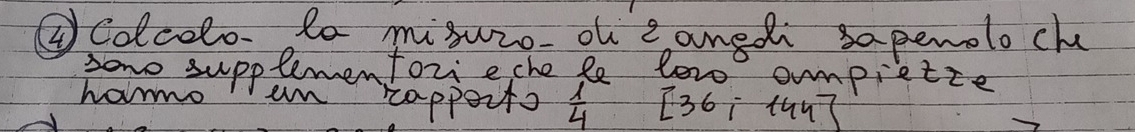 ④ Calcola la misura di 2 angoli sapendo che
sono supplementari e che le loro ampiezze
hanno un rapporto 1/4 [36; 144]